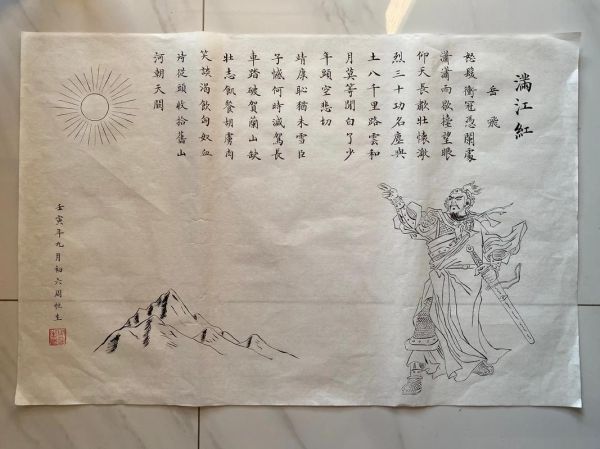 滿江紅
岳飛
怒髮衝冠憑闌處
瀟瀟雨歇擡望眼
仰天長歗壯懷激
烈三十功名塵與
土八千里路雲和
月莫等閒白了少
年頭空悲切
靖康恥猶未雪臣
子憾何時滅駕長
車踏破賀蘭山缺
壯志飢餐胡虜肉
笑談渴飲匈奴血
待從頭收拾舊山
河朝天闕
壬寅年九月初六周恒